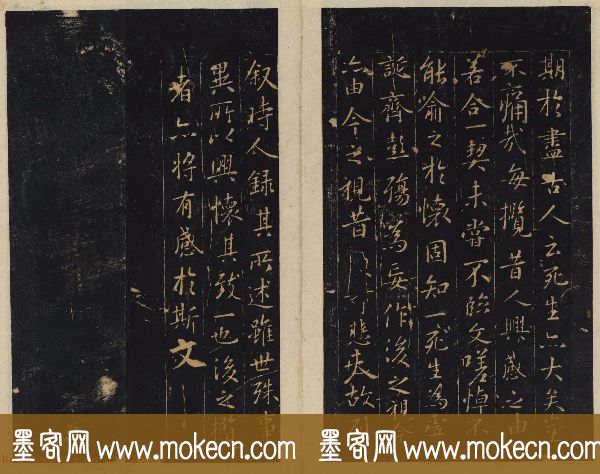 期於盡古人云死生亦大矣豈
不痛哉每攬昔人興感之由
若合一契未嘗不臨文嗟悼不
能喻之於懷固知一死生為虛
誕齊彭殤為妄作後之視今
亦由今之視昔悲夫故列
叙時人錄其所述雖世殊事
異所以興懷其致一也後之攬
者亦將有感於斯文
墨客网 www.mokecn.com
墨客网 www.mokecn.com